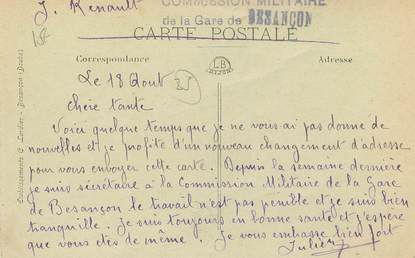 J. Renault
COMMISSION MILITAIRE
de la Gare de BESANÇON
CARTE POSTALE
Correspondance
Adresse
LB
DIJON
Le 18 Aout
Chère tante
Voici quelque temps que je ne vous ai pas donne de
nouvelles et je profite d'un nouveau changement d'adresse
pour vous envoyer cette carte. Depuis la semaine dernière
je suis secrétaire à la Commission Militaire de la Gare
de Besançon le travail n'est pas pénible et je suis bien
tranquille. Je suis toujours en bonne santé et j'espère
que vous êtes de même. Je vous embrasse bien fort
Julien
Etablissements C. Lardier - Besançon (Doubs)